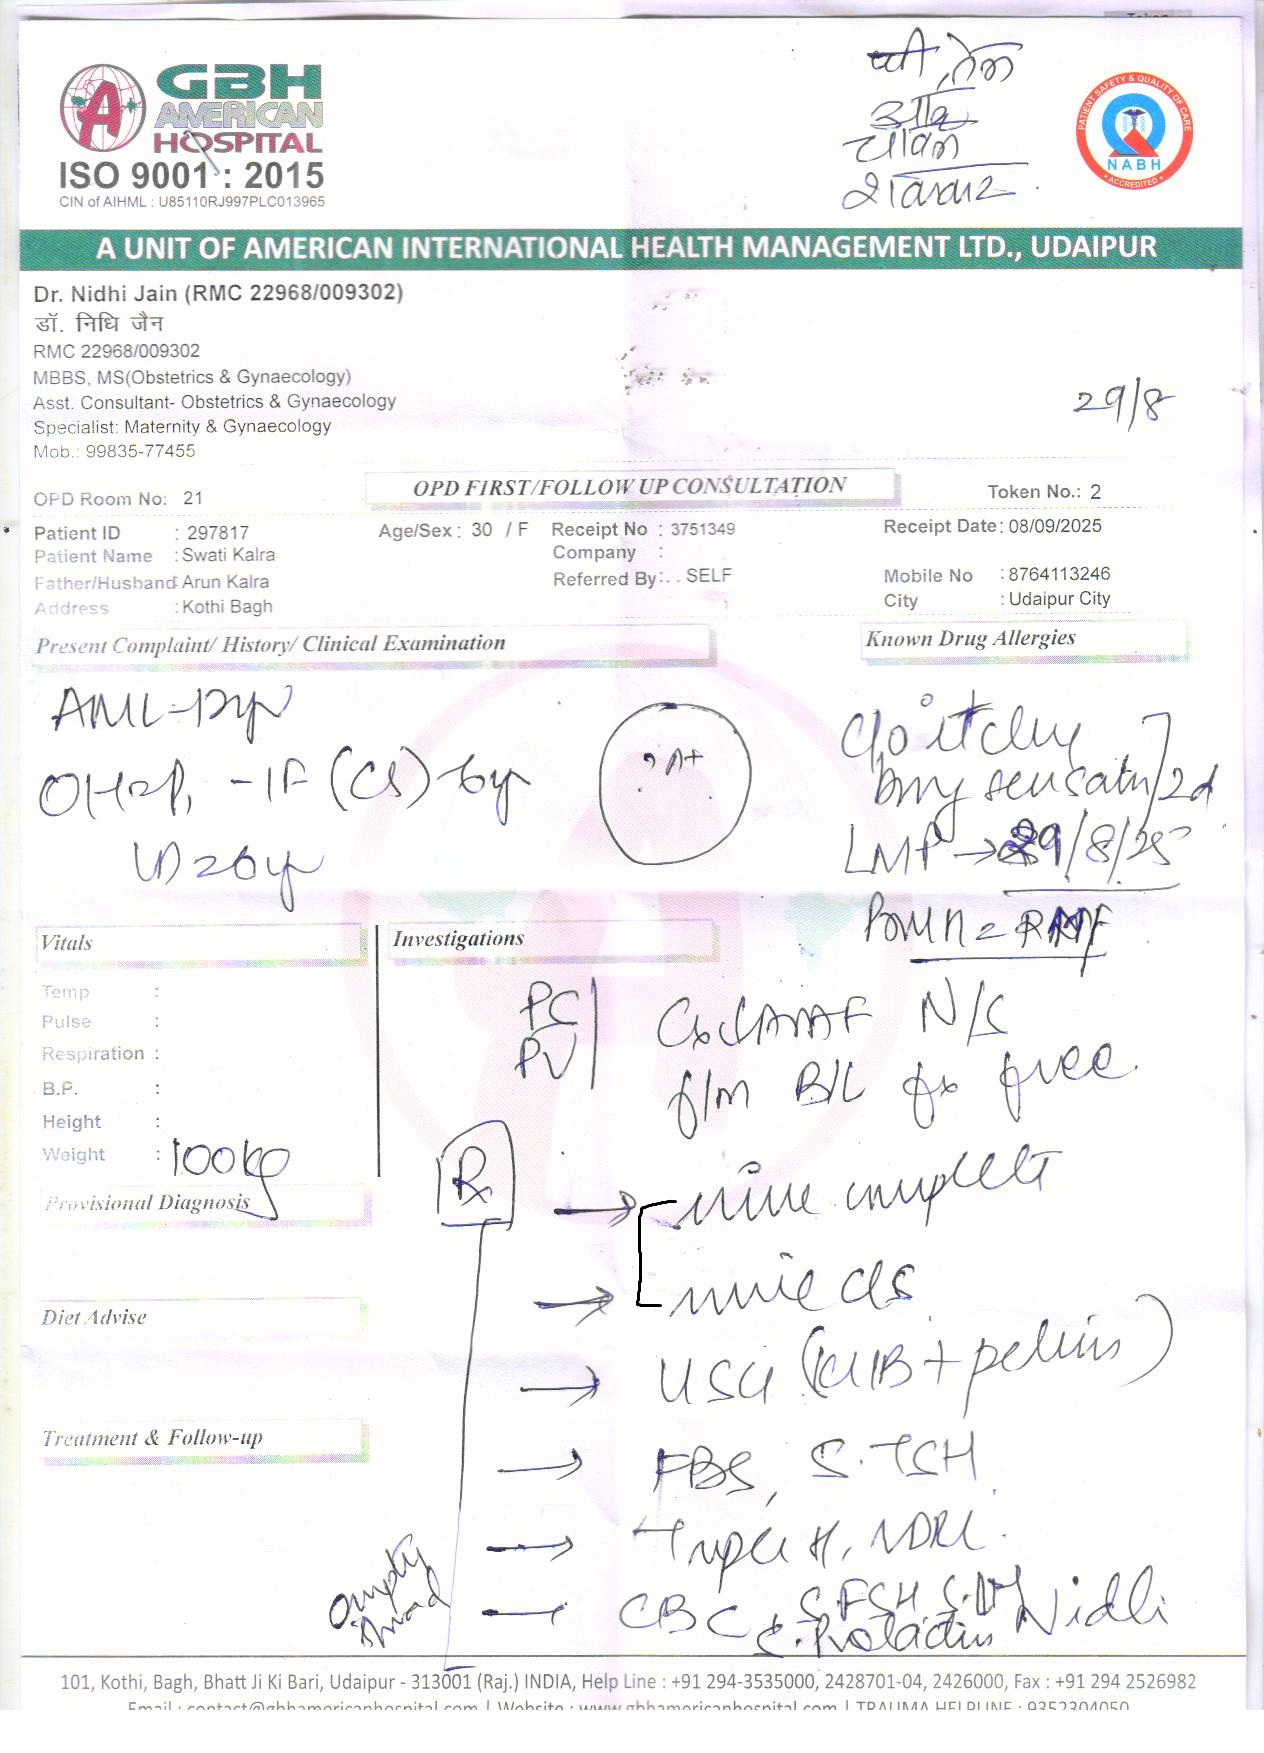 Token
GBH
AMERICAN
HOSPITAL
ISO 9001 : 2015
CIN of AIHML : U85110RJ997PLC013965
घी, तेल
आलू
चावल
शक्कर
PATIENT SAFETY & QUALITY OF CARE
NABH
ACCREDITED
A UNIT OF AMERICAN INTERNATIONAL HEALTH MANAGEMENT LTD., UDAIPUR
Dr. Nidhi Jain (RMC 22968/009302)
डॉ. निधि जैन
RMC 22968/009302
MBBS, MS(Obstetrics & Gynaecology)
Asst. Consultant- Obstetrics & Gynaecology
29/8
Specialist: Maternity & Gynaecology
Mob.: 99835-77455
OPD Room No: 21 OPD FIRST/FOLLOW UP CONSULTATION Token No.: 2
Patient ID : 297817 Age/Sex : 30 / F Receipt No : 3751349 Receipt Date: 08/09/2025
Patient Name : Swati Kalra Company :
Father/Husband: Arun Kalra Referred By: . . SELF Mobile No : 8764113246
Address : Kothi Bagh City : Udaipur City
Present Complaint/ History/ Clinical Examination Known Drug Allergies
A+
c/o itchy
sensatn / 2d
LMP → 29/8/25
Vitals Investigations
Temp :
Pulse :
Respiration :
B.P. :
Height :
Weight : 100kg
PS
PV
N/S
B/L fx free
Provisional Diagnosis
Rx → urine complete
→ urine c/s
Diet Advise
→ USG (KUB + pelvis)
Treatment & Follow-up
→ FBS, S. TSH
→ Triple H, VDRL
empty
CBC S. FSH S. LH Nidhi
S. Prolactin
101, Kothi, Bagh, Bhatt Ji Ki Bari, Udaipur - 313001 (Raj.) INDIA, Help Line : +91 294-3535000, 2428701-04, 2426000, Fax : +91 294 2526982
Email : contact@gbhamericanhospital.com | Website : www.gbhamericanhospital.com | TRAUMA HELPLINE : 9352304050